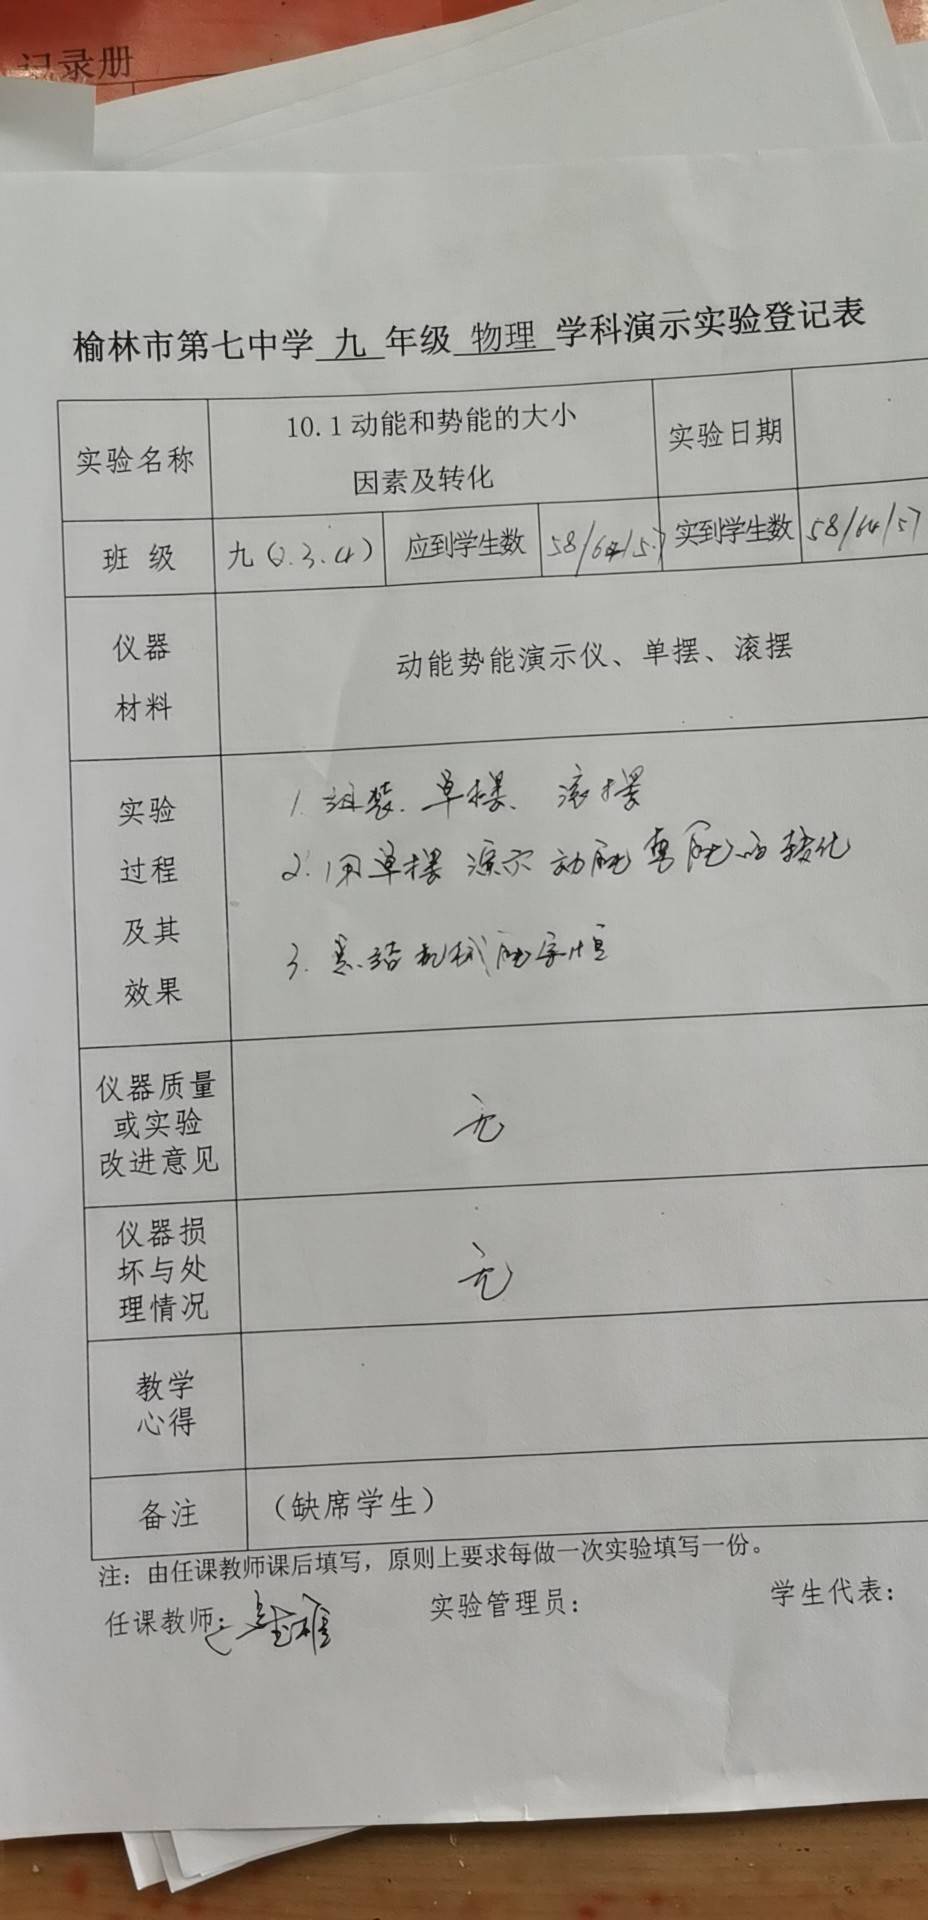 记录册
榆林市第七中学 九 年级 物理 学科演示实验登记表
实验名称 10.1动能和势能的大小 实验日期
因素及转化
班 级 九(2.3.4) 应到学生数 58/64/57 实到学生数 58/64/57
仪器
材料
动能势能演示仪、单摆、滚摆
实验
过程
及其
效果
1. 组装、单摆、滚摆
2. 用单摆演示动能势能的转化
3. 总结机械能守恒
仪器质量
或实验
改进意见
无
仪器损
坏与处
理情况
无
教学
心得
备注 (缺席学生)
注: 由任课教师课后填写, 原则上要求每做一次实验填写一份。
任课教师: 实验管理员: 学生代表: